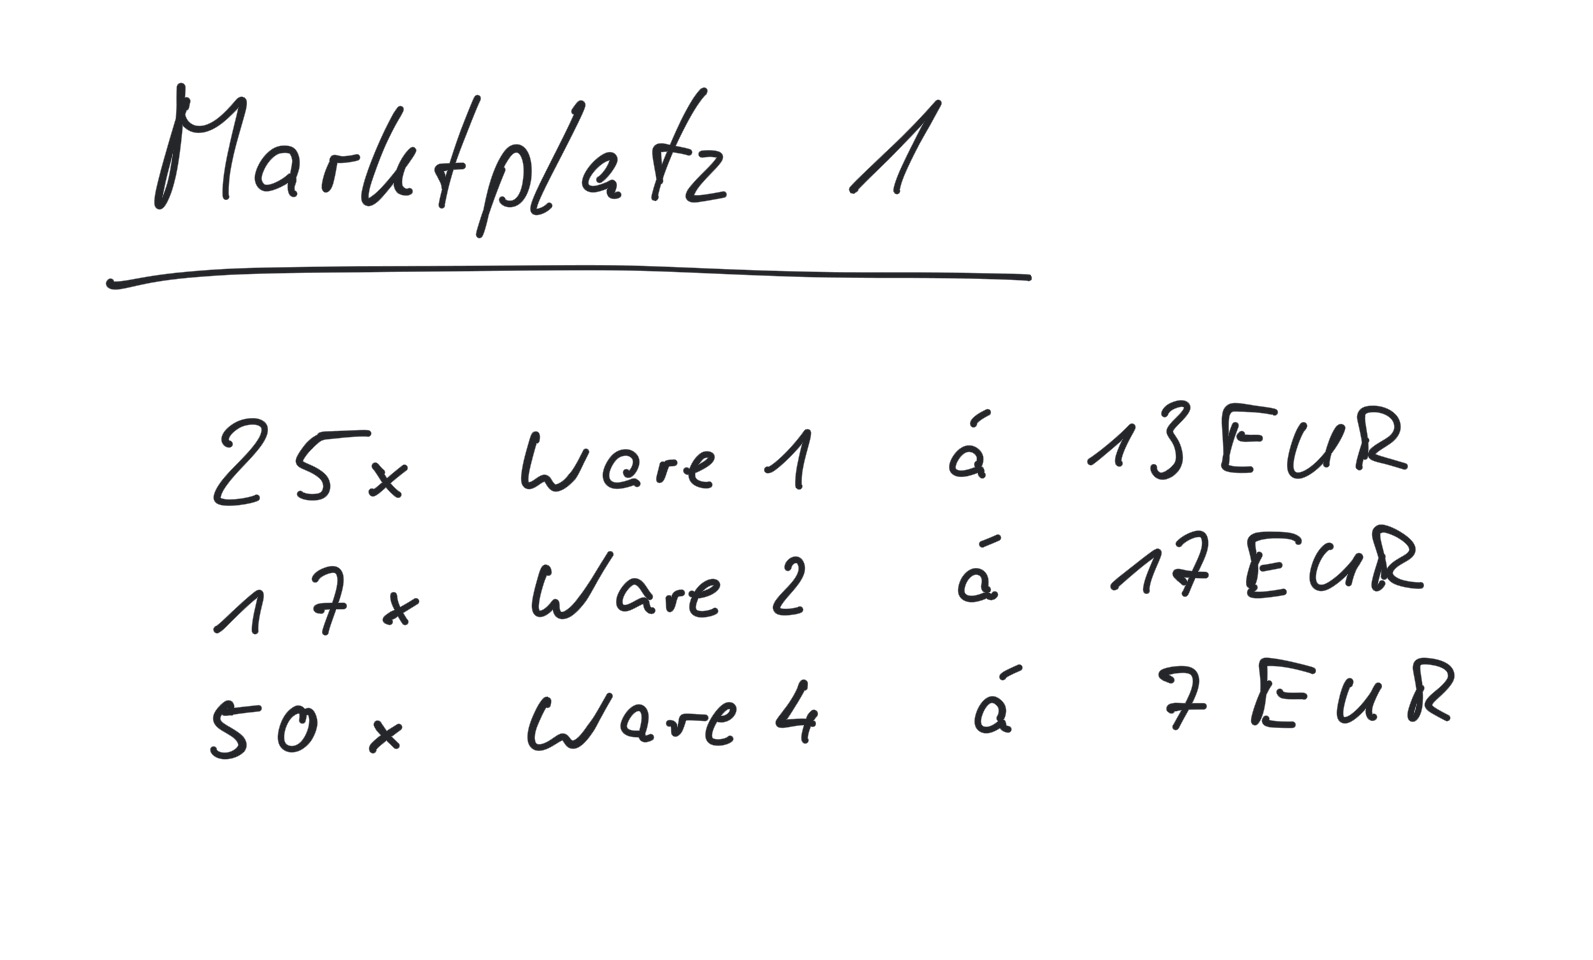 Marktplatz 1
25x Ware 1 á 13 EUR
17x Ware 2 á 17 EUR
50x Ware 4 á 7 EUR